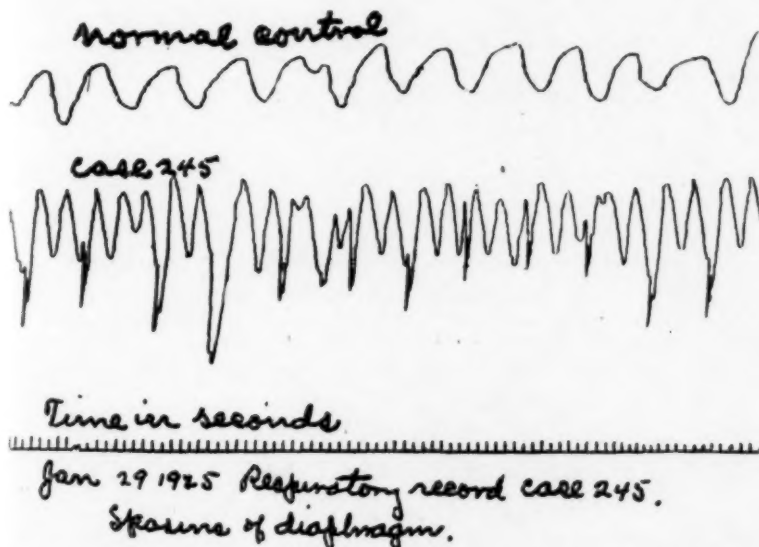 normal control
case 245
Time in seconds
Jan 29 1925 Respiratory record case 245.
Spasms of diaphragm.